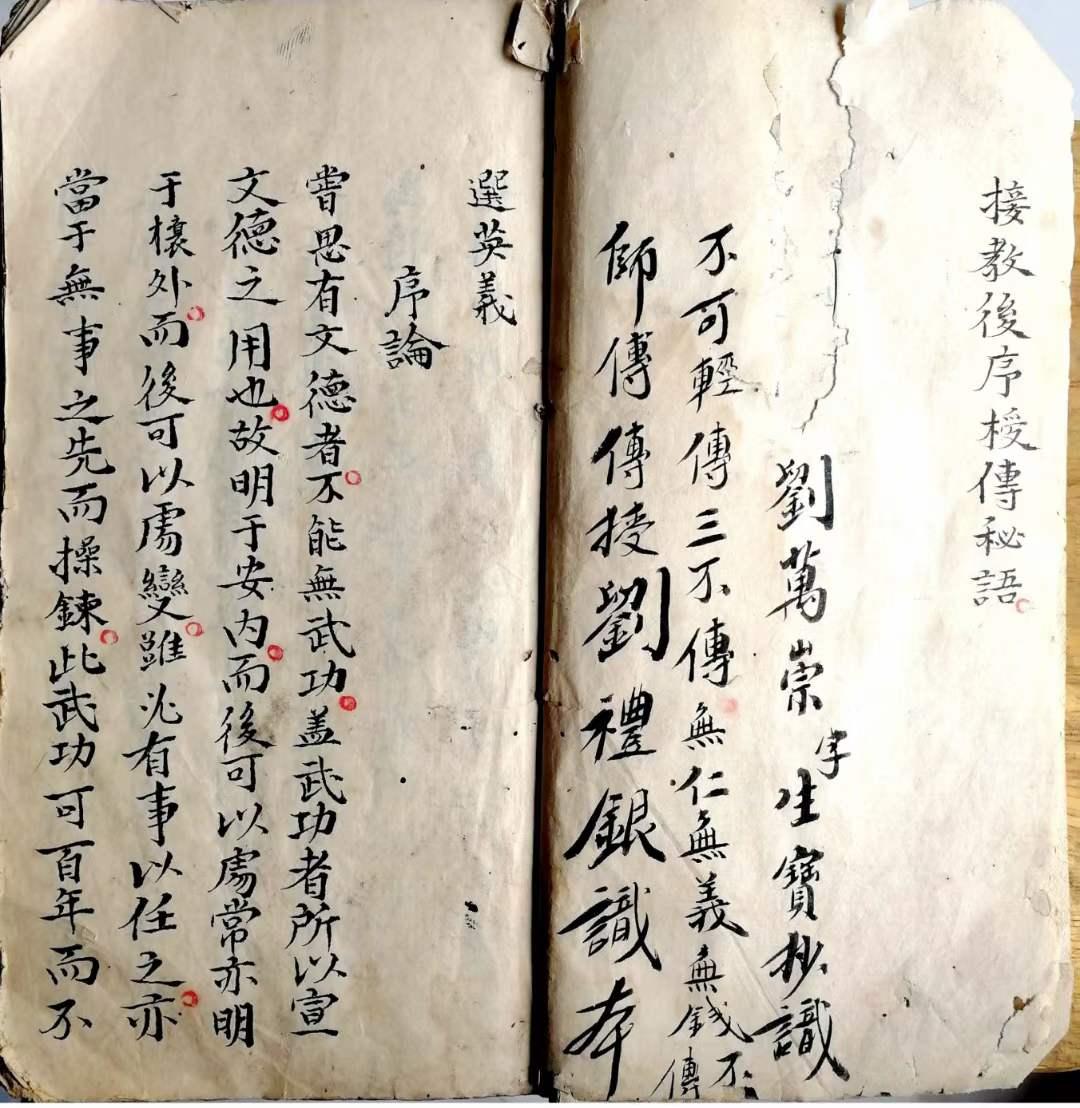 接教後序授傳秘語
劉萬崇字生寶抄識
不可輕傳三不傳無仁無義無錢不傳
師傳傳授劉禮銀識本
選英義
序論
嘗思有文德者不能無武功盖武功者所以宣
文德之用也故明于安内而後可以處常亦明
于欀外而後可以處變雖必有事以任之亦
當于無事之先而操鍊此武功可百年而不